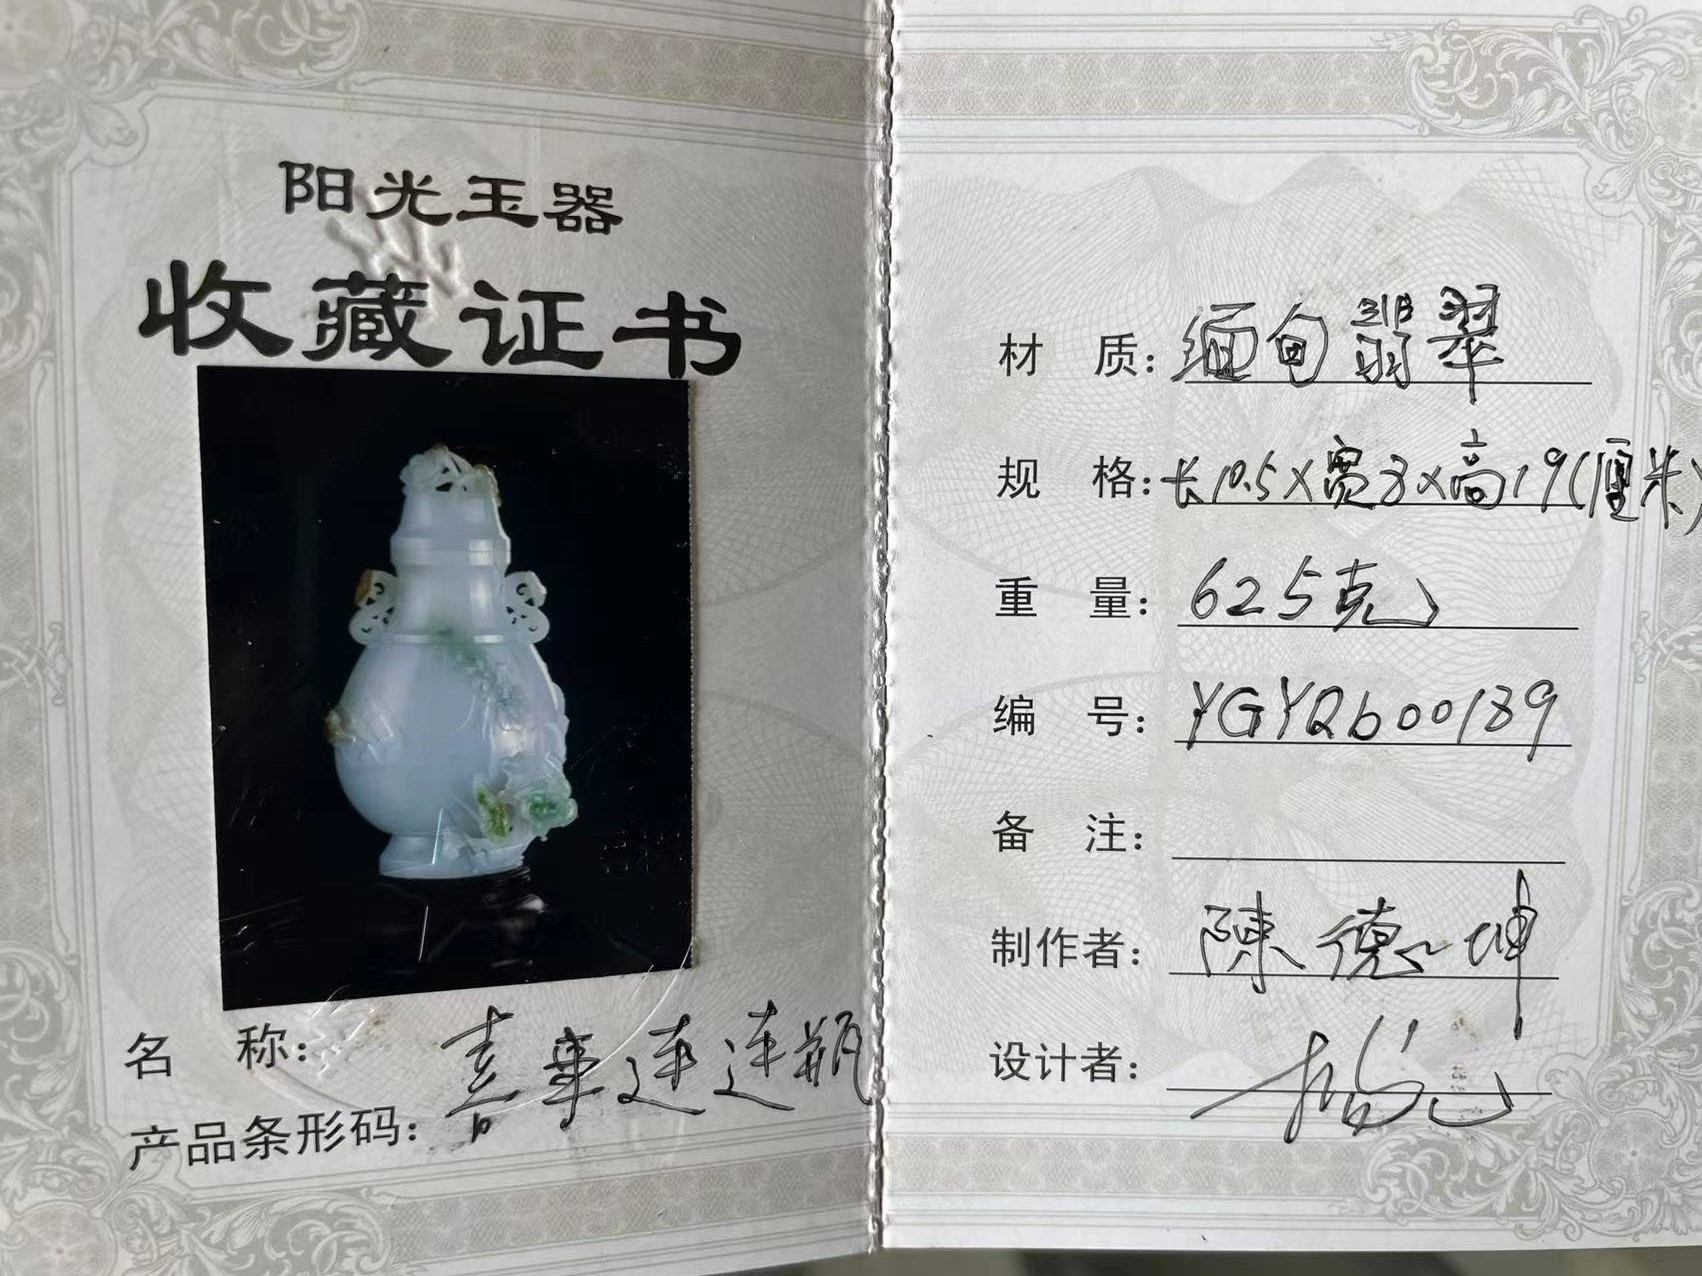 阳光玉器
收藏证书
名 称: 喜事连连瓶
产品条形码:
材 质: 缅甸翡翠
规 格: 长10.5×宽3×高19(厘米)
重 量: 625克
编 号: YGYQb00189
备 注:
制作者: 陳德坤
设计者: